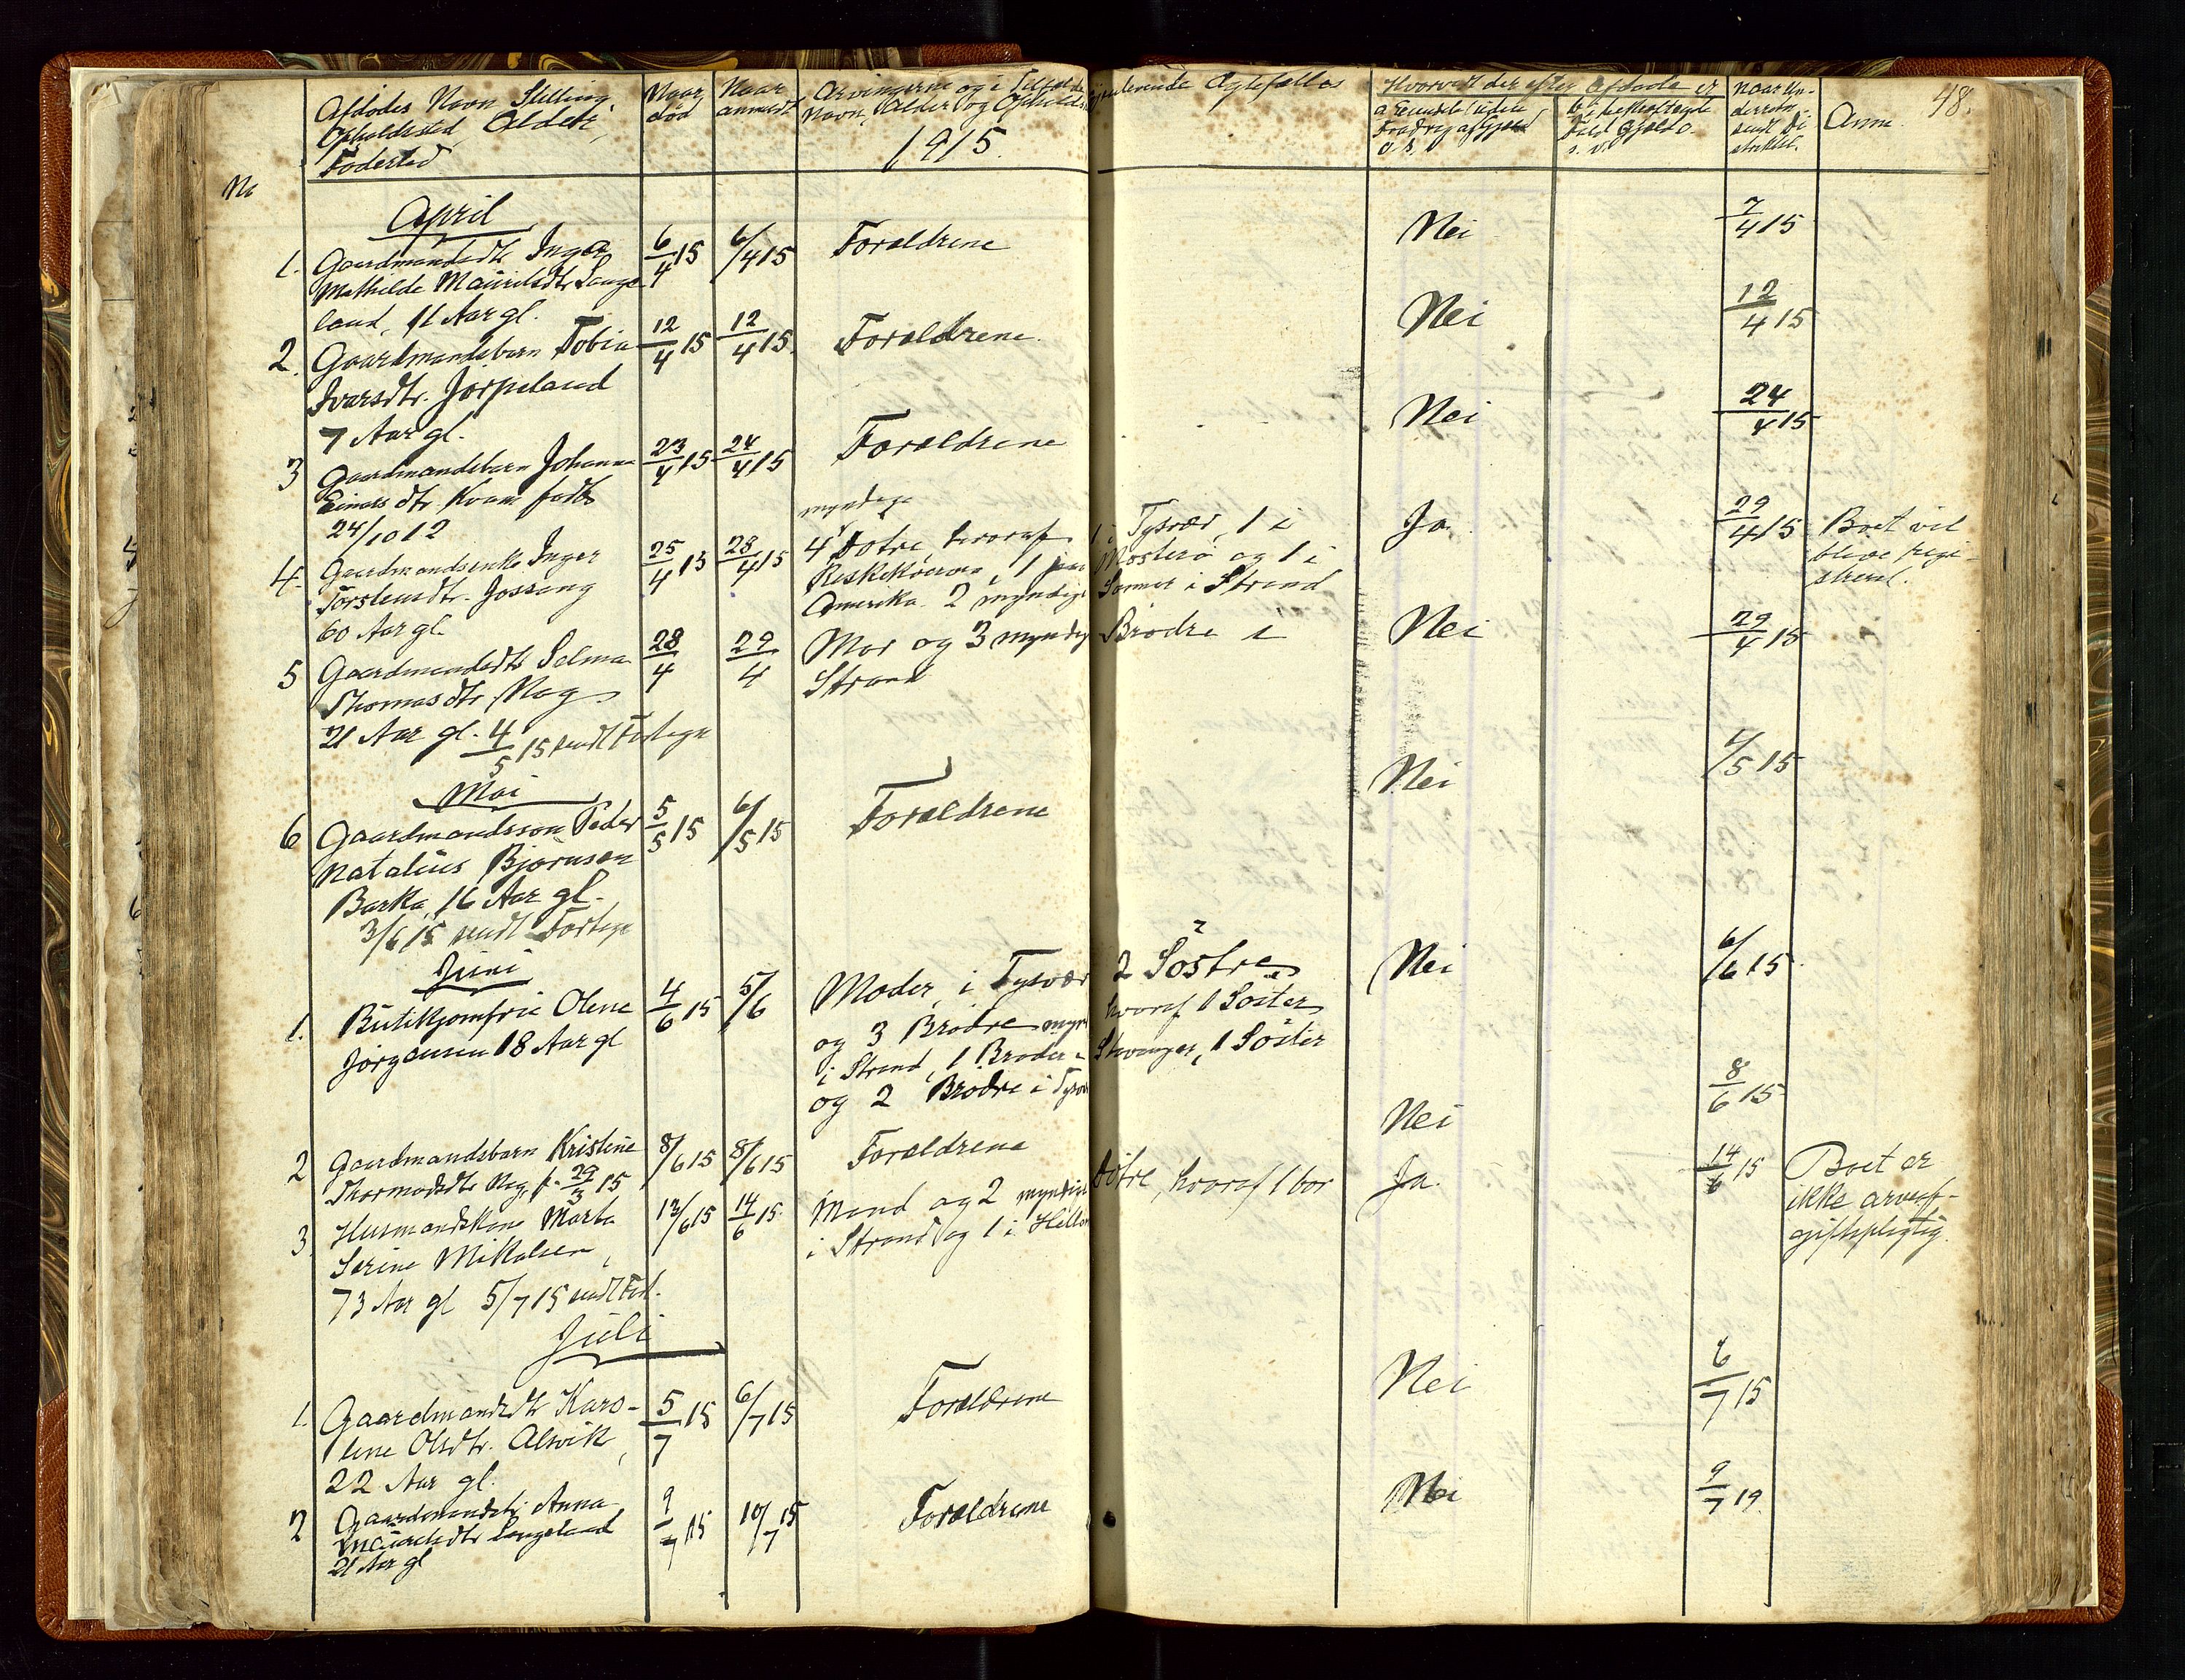 48.
No
Afdødes Navn Stilling,
Opholdssted, Alder,
Fødested
Naar død
Naar anmeldt
Arvingerne og i Tilfælde gjenlevende Ægtefælles
Navn, Alder og Opholdssted
1915.
Hvorvidt der efter Afdøde er
a Eiendele uden
Fradrag af Gjæld
Naar Un-
derretn.
sendt Di-
striktet.
Anm.
April
1. Gaardmandsdtr Inger 6/4 15 6/4 15 Forældrene Nei 7/4 15
Mathilde Mauritsdtr Lange
land, 11 Aar gl.
2. Gaardmandsbarn Tobia 12/4 15 12/4 15 Forældrene Nei 12/4 15
Ivarsdtr. Jørpeland
7 Aar gl.
3 Gaardmandsbarn Johanna 23/4 15 24/4 15 Forældrene Nei 24/4 15
Einarsdtr. Kvam født
24/10 12
myndige
4. Gaardmandsenke Inger 25/4 15 28/4 15 4 Døtre, hvoraf 1 i Tysvær, 1 i Ja. 29/4 15 Boet vil
Torsteinsdtr. Jøssang 1 paa Mosterø og 1 i blive regi-
60 Aar gl. Amerika. 2 myndige Sønner i Strand streret.
5 Gaardmandsdtr Selma 28/4 29/4 Mor og 3 myndige Brødre i Nei 29/4 15
Thomasdtr Nag Strand
21 Aar gl. 4/5 15 sendt Fortegn
Mai
6 Gaardmandssøn Peder 5/5 15 6/5 15 Forældrene Nei 6/5 15
Natalius Bjørnsen
Barka, 16 Aar gl.
3/6 15 sendt Fortegn
Juni
1. Butikjomfru Olene 4/6 15 5/6 Moder, i Tysvær 2 Søstre Nei 6/6 15
Jørgensen 18 Aar gl og 3 Brødre hvoraf 1 Søster
i Strand, 1 Broder i Stavanger, 1 Søster
og 2 Brødre i Tysvær
2 Gaardmandsbarn Kristine 8/6 15 8/6 15 Forældrene Nei 8/6 15
Thormodsdtr Nag, f. 29/3 15
3. Husmandskone Marta 13/6 15 14/6 15 Mand og 2 myndige Døtre, hvoraf 1 bor Ja. 14/6 15 Boet er
Serine Mikalsen, i Strand og 1 i ikke arveaf-
73 Aar gl 5/7 15 sendt Fort. giftspligtig.
Juli
1. Gaardmandsdtr Karo- 5/7 15 6/7 15 Forældrene Nei 6/7 15
line Olsdtr. Alsvik,
22 Aar gl.
2 Gaardmandsdtr Anna 9/7 15 10/7 15 Forældrene Nei 9/7 19.
Mauritsdtr Langeland
21 Aar gl